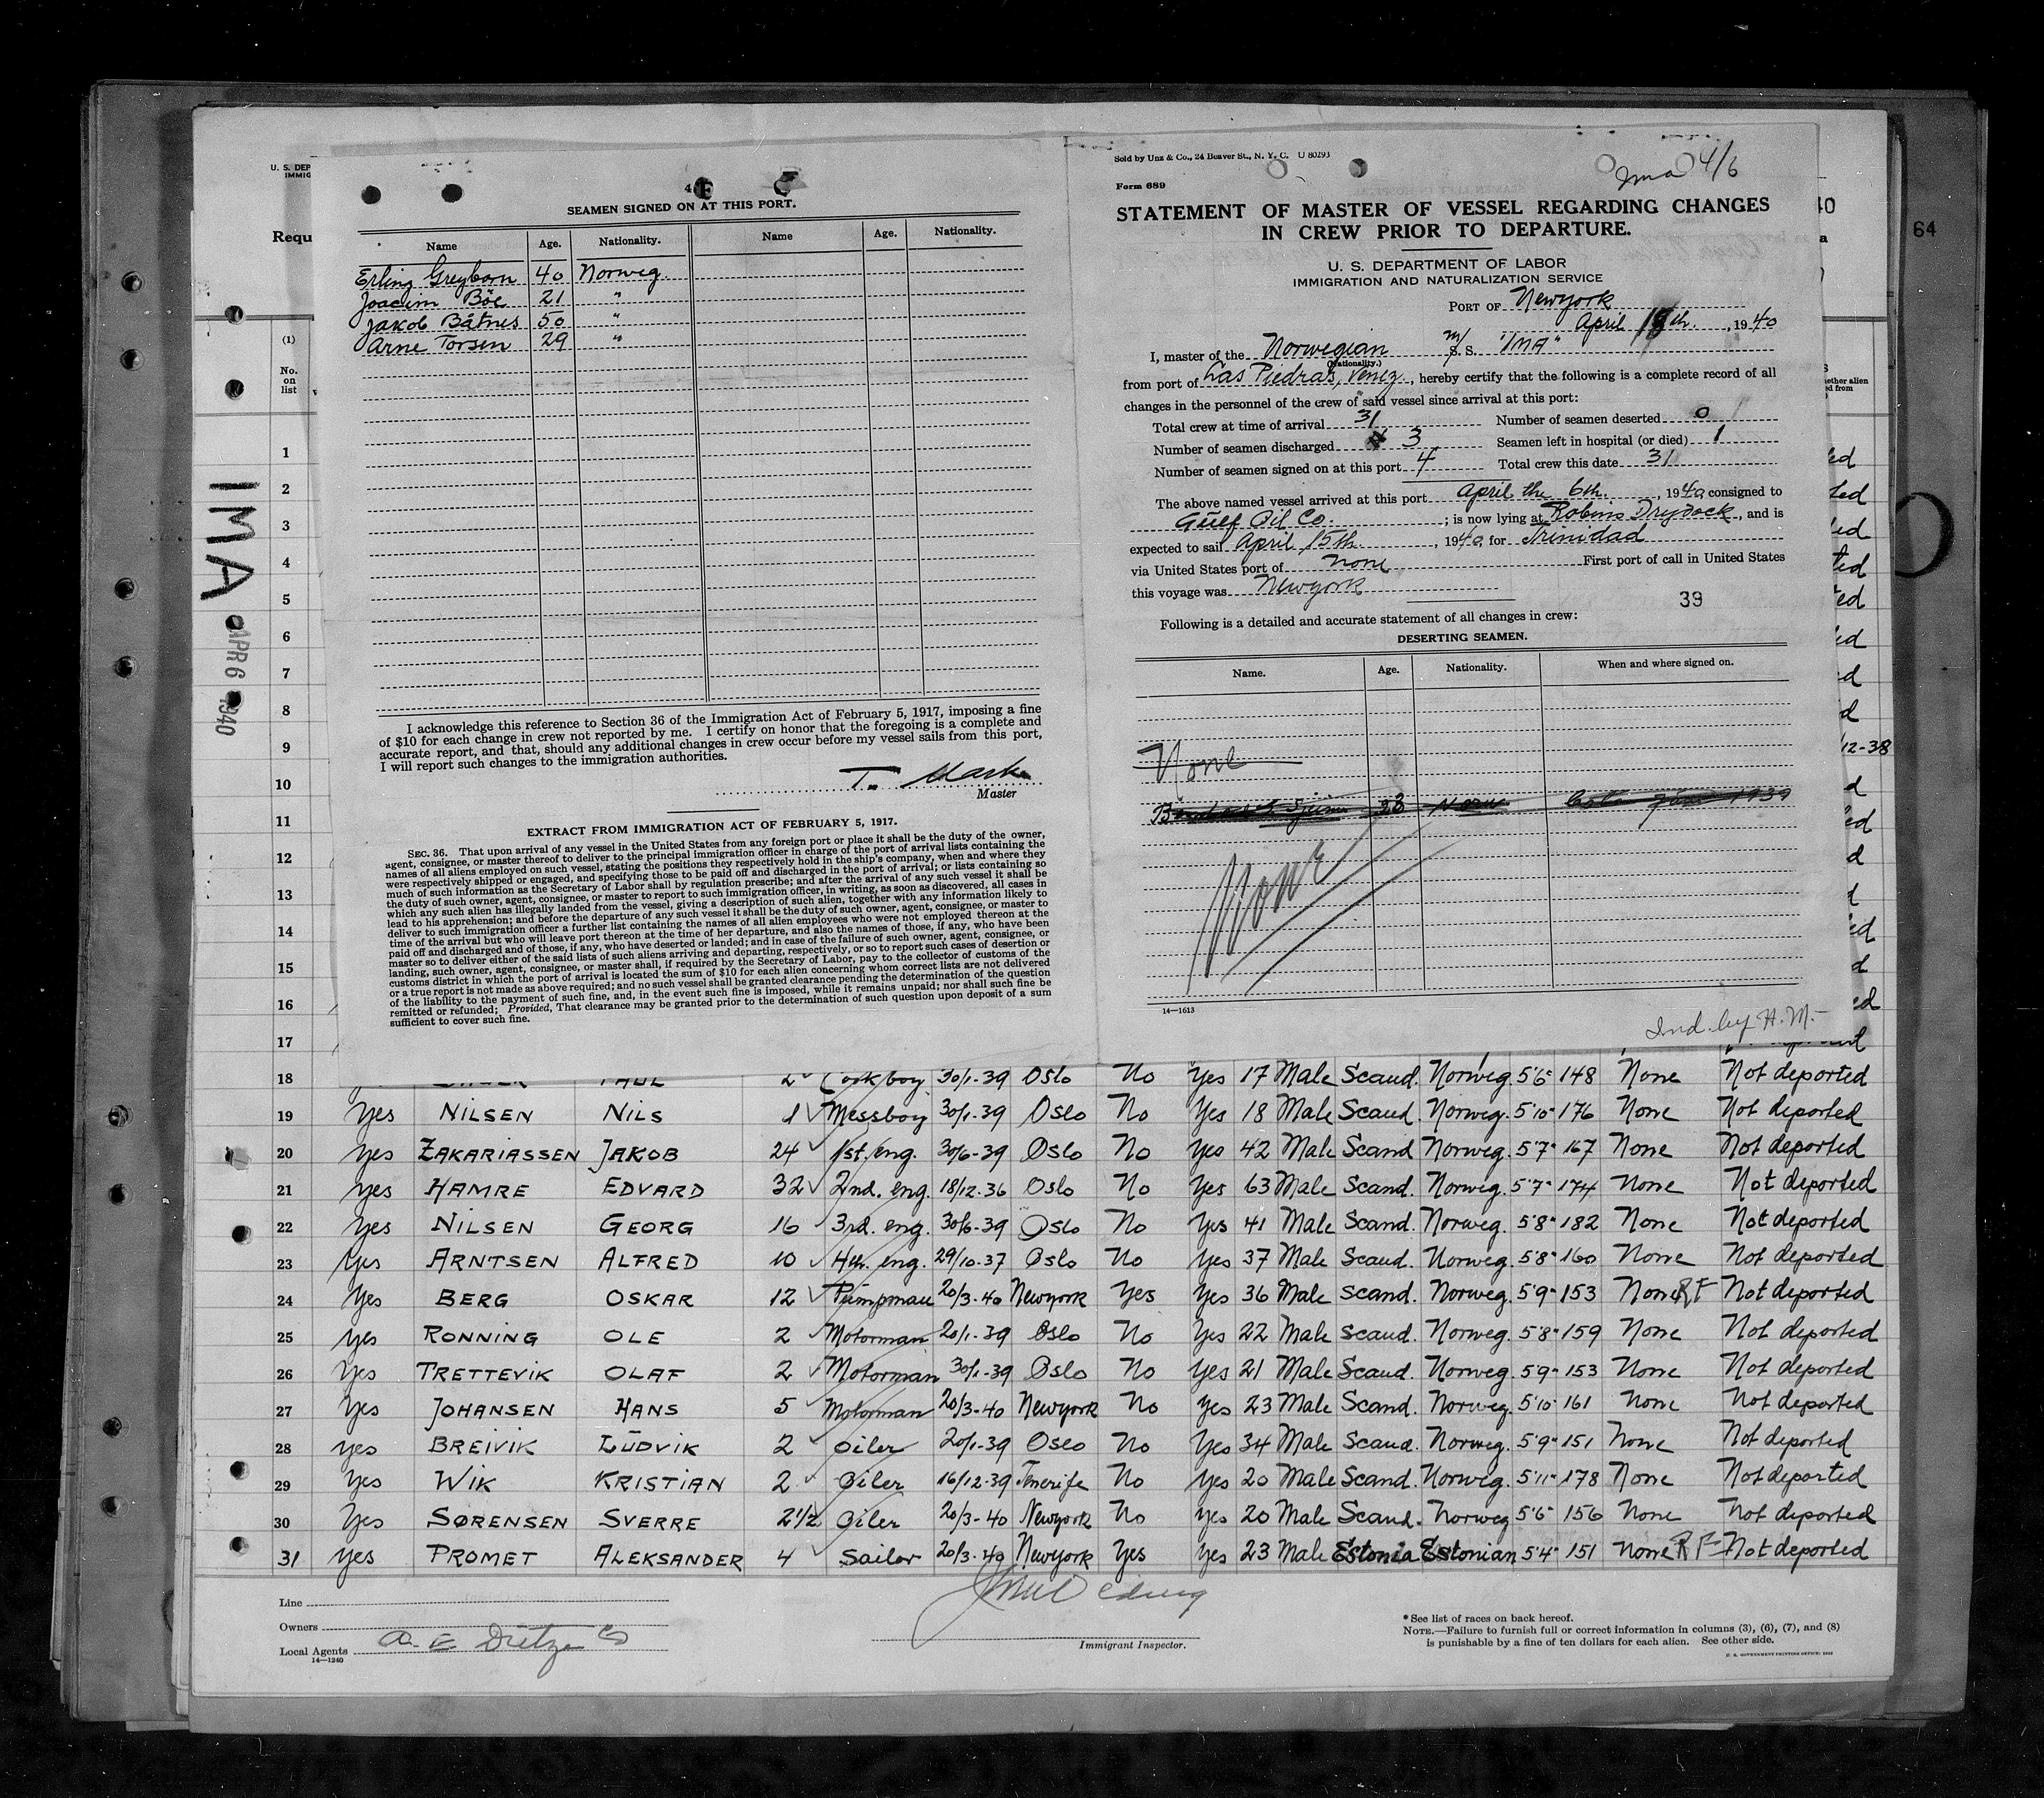 U. S. DEP
IMMIG
Requ
(1)
No.
on
list
IMA
APR 6 1940
4
SEAMEN SIGNED ON AT THIS PORT.
Name Age. Nationality. Name Age. Nationality.
Erling Greyborn 40 Norweg.
Joacim Böe 21 "
Jakob Båtnes 50 "
Arne Torsen 29 "
I acknowledge this reference to Section 36 of the Immigration Act of February 5, 1917, imposing a fine
of $10 for each change in crew not reported by me. I certify on honor that the foregoing is a complete and
accurate report, and that, should any additional changes in crew occur before my vessel sails from this port,
I will report such changes to the immigration authorities.
T.
Master
EXTRACT FROM IMMIGRATION ACT OF FEBRUARY 5, 1917.
SEC. 36. That upon arrival of any vessel in the United States from any foreign port or place it shall be the duty of the owner,
agent, consignee, or master thereof to deliver to the principal immigration officer in charge of the port of arrival lists containing the
names of all aliens employed on such vessel, stating the positions they respectively hold in the ship's company, when and where they
were respectively shipped or engaged, and specifying those to be paid off and discharged in the port of arrival; or lists containing so
much of such information as the Secretary of Labor shall by regulation prescribe; and after the arrival of any such vessel it shall be
the duty of such owner, agent, consignee, or master to report to such immigration officer, in writing, as soon as discovered, all cases in
which any such alien has illegally landed from the vessel, giving a description of such alien, together with any information likely to
lead to his apprehension; and before the departure of any such vessel it shall be the duty of such owner, agent, consignee, or master to
deliver to such immigration officer a further list containing the names of all alien employees who were not employed thereon at the
time of the arrival but who will leave port thereon at the time of her departure, and also the names of those, if any, who have been
paid off and discharged and of those, if any, who have deserted or landed; and in case of the failure of such owner, agent, consignee, or
master so to deliver either of the said lists of such aliens arriving and departing, respectively, or so to report such cases of desertion or
landing, such owner, agent, consignee, or master shall, if required by the Secretary of Labor, pay to the collector of customs of the
customs district in which the port of arrival is located the sum of $10 for each alien concerning whom correct lists are not delivered
or a true report is not made as above required; and no such vessel shall be granted clearance pending the determination of the question
of the liability to the payment of such fine, and, in the event such fine is imposed, while it remains unpaid; nor shall such fine be
remitted or refunded; Provided, That clearance may be granted prior to the determination of such question upon deposit of a sum
sufficient to cover such fine.
Sold by Unz & Co., 24 Beaver St., N. Y. C. U 80293
Form 689
Ima 4/6
STATEMENT OF MASTER OF VESSEL REGARDING CHANGES
IN CREW PRIOR TO DEPARTURE.
U. S. DEPARTMENT OF LABOR
IMMIGRATION AND NATURALIZATION SERVICE
PORT OF Newyork
April th. , 1940
I, master of the Norwegian M/S. S. "IMA"
(Nationality.)
from port of Las Piedras, Venez., hereby certify that the following is a complete record of all
changes in the personnel of the crew of said vessel since arrival at this port:
Total crew at time of arrival 31 Number of seamen deserted 0
Number of seamen discharged 3 Seamen left in hospital (or died) 1
Number of seamen signed on at this port 4 Total crew this date 31
The above named vessel arrived at this port April the 6th. , 1940 consigned to
Gulf Oil Co. ; is now lying at Robins Drydock, and is
expected to sail April 15th , 1940, for Trinidad
via United States port of none First port of call in United States
this voyage was Newyork
39
Following is a detailed and accurate statement of all changes in crew:
DESERTING SEAMEN.
Name. Age. Nationality. When and where signed on.
None
23 Norw 1939
None
14—1613
Ind. by H. M.
64
1
2
3
4
5
6
7
8
9
10
11
12
13
14
15
16
17
18 PAUL 2 Cook boy 30/1-39 Oslo No Yes 17 Male Scand. Norweg. 5'6" 148 None Not deported
19 Yes NILSEN NILS 1 Messboy 30/1-39 Oslo No Yes 18 Male Scand. Norweg. 5'10" 176 None Not deported
20 Yes ZAKARIASSEN JAKOB 24 1st. eng. 30/6-39 Oslo No Yes 42 Male Scand Norweg. 5'7" 167 None Not deported
21 Yes HAMRE EDVARD 32 2nd. eng. 18/12-36 Oslo No Yes 63 Male Scand. Norweg. 5'7" 174 None Not deported
22 Yes NILSEN GEORG 16 3rd. eng. 30/6-39 Oslo No Yes 41 Male Scand. Norweg. 5'8" 182 None Not deported
23 Yes ARNTSEN ALFRED 10 4th. eng. 29/10-37 Oslo No Yes 37 Male Scand. Norweg. 5'8" 160 None Not deported
24 Yes BERG OSKAR 12 Pumpman 20/3-40 Newyork Yes Yes 36 Male Scand. Norweg. 5'9" 153 None RF Not deported
25 Yes RONNING OLE 2 Motorman 20/1-39 Oslo No Yes 22 Male Scand. Norweg. 5'8" 159 None Not deported
26 Yes TRETTEVIK OLAF 2 Motorman 30/1-39 Oslo No Yes 21 Male Scand. Norweg. 5'9" 153 None Not deported
27 Yes JOHANSEN HANS 5 Motorman 20/3-40 Newyork No Yes 23 Male Scand. Norweg. 5'10" 161 None Not deported
28 Yes BREIVIK LUDVIK 2 Oiler 20/1-39 Oslo No Yes 34 Male Scand. Norweg. 5'9" 151 None Not deported
29 Yes WIK KRISTIAN 2 Oiler 16/12-39 Tenerife No Yes 20 Male Scand. Norweg. 5'11" 178 None Not deported
30 Yes SØRENSEN SVERRE 2 1/2 Oiler 20/3-40 Newyork No Yes 20 Male Scand. Norweg 5'6" 156 None Not deported
31 Yes PROMET ALEKSANDER 4 Sailor 20/3-40 Newyork Yes Yes 23 Male Estonia Estonian 5'4" 151 None RF Not deported
Line
Owners
Local Agents A. E. Dietze Co
14—1240
Immigrant Inspector.
* See list of races on back hereof.
NOTE.—Failure to furnish full or correct information in columns (3), (6), (7), and (8)
is punishable by a fine of ten dollars for each alien. See other side.
U. S. GOVERNMENT PRINTING OFFICE